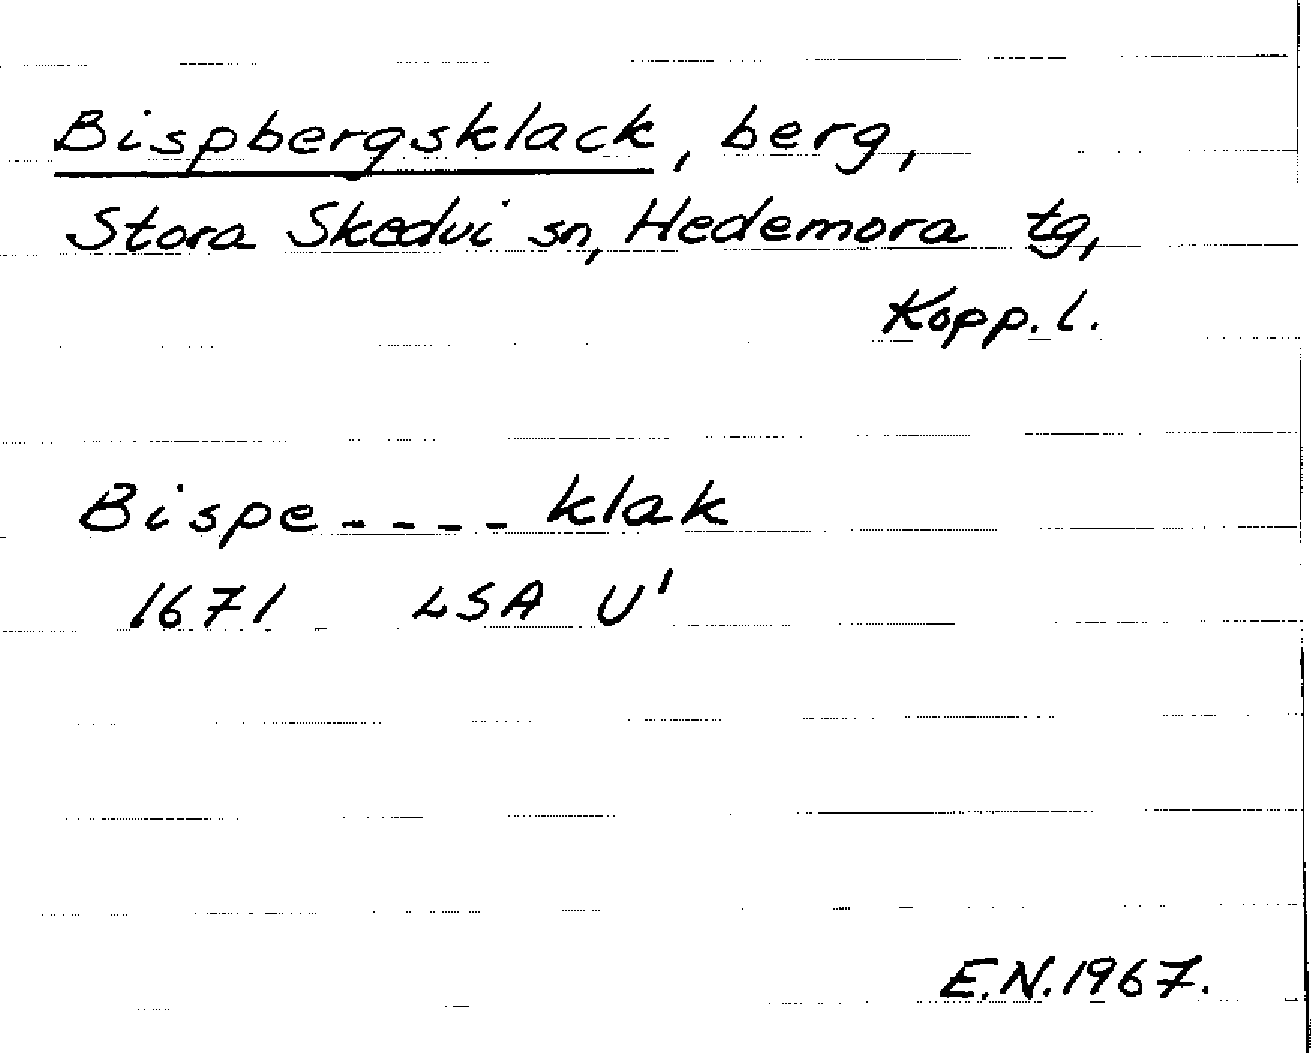 Bispbergsklack, berg,
Stora Skedvi sn, Hedemora tg,
Kopp. l.
Bispe - - - - klak
1671 LSA U'
E.N. 1967.